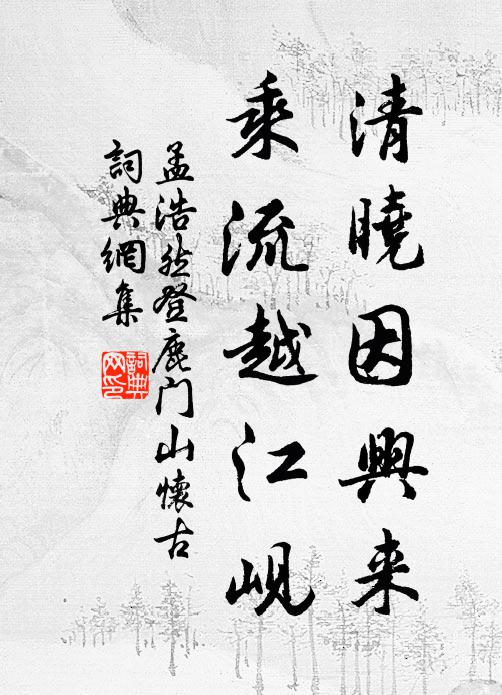 清曉因興来
乘流越江峴
孟浩然登鹿门山懷古
詞典網集
詞典网印